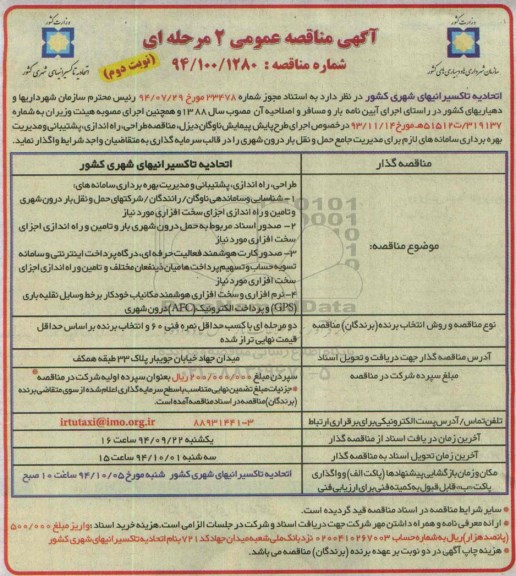 وزارت کشور
وزارت کشور
آگهی مناقصه عمومی ۲ مرحله ای
شماره مناقصه : ۹۴/۱۰۰/۱۲۸۰
(نوبت دوم)
سازمان شهرداری ها و دهیاری های کشور
اتحادیه تاکسیرانیهای شهری کشور
اتحادیه تاکسیرانیهای شهری کشور در نظر دارد به استناد مجوز شماره ۳۳۴۷۸ مورخ ۹۴/۰۷/۲۹ رئیس محترم سازمان شهرداریها و
دهیاریهای کشور در راستای اجرای آیین نامه بار و مسافر و اصلاحیه آن مصوب سال ۱۳۸۸ و همچنین اجرای مصوبه هیئت وزیران به شماره
۳۱۹۱۳۷/ت۵۱۵۱۲ه مورخ ۹۳/۱۱/۱۴ در خصوص اجرای طرح پایش پیمایش ناوگان دیزل، مناقصه طراحی، راه اندازی، پشتیبانی و مدیریت
بهره برداری سامانه های لازم برای مدیریت جامع حمل و نقل بار درون شهری را در قالب سرمایه گذاری به متقاضیان واجد شرایط واگذار نماید.
مناقصه گذار
اتحادیه تاکسیرانیهای شهری کشور
موضوع مناقصه:
طراحی، راه اندازی، پشتیبانی و مدیریت بهره برداری سامانه های:
۱- شناسایی و ساماندهی ناوگان / رانندگان / شرکتهای حمل و نقل بار درون شهری
و تامین و راه اندازی اجزای سخت افزاری مورد نیاز
۲- صدور اسناد مربوط به حمل درون شهری بار و تامین و راه اندازی اجزای
سخت افزاری مورد نیاز
۳- صدور کارت هوشمند فعالیت حرفه ای، درگاه پرداخت اینترنتی و سامانه
تسویه حساب و تسهیم پرداخت ها میان ذینفعان مختلف و تامین و راه اندازی اجزای
سخت افزاری مورد نیاز
۴- نرم افزاری و سخت افزاری هوشمند مکانیاب خودکار بر خط وسایل نقلیه باری
(GPS) و پرداخت الکترونیک (AFC) درون شهری
نوع مناقصه و روش انتخاب برنده (برندگان) مناقصه
دو مرحله ای با کسب حداقل نمره فنی ۶۰ و انتخاب برنده بر اساس حداقل
قیمت نهایی تراز شده
آدرس مناقصه گذار جهت دریافت و تحویل اسناد
میدان جهاد خیابان جویبار پلاک ۲۳ طبقه همکف
مبلغ سپرده شرکت در مناقصه
سپردن مبلغ ۲۰۰/۰۰۰/۰۰۰ ریال بعنوان سپرده اولیه شرکت در مناقصه
* جزئیات مبلغ تضمین نهایی متناسب با سطح سرمایه گذاری اعلام شده از سوی متقاضی برنده
(برندگان) مناقصه در اسناد مناقصه آمده است.
تلفن تماس / آدرس پست الکترونیکی برای برقراری ارتباط
۸۸۹۳۱۴۴۱-۳ irtutaxi@imo.org.ir
آخرین زمان دریافت اسناد از مناقصه گذار
یکشنبه ۹۴/۰۹/۲۲ ساعت ۱۶
آخرین زمان تحویل اسناد به مناقصه گذار
سه شنبه ۹۴/۱۰/۰۱ ساعت ۱۵
مکان و زمان بازگشایی پیشنهادها (پاکت الف) و واگذاری
پاکت «ب» قابل قبول به کمیته فنی برای ارزیابی فنی
اتحادیه تاکسیرانیهای شهری کشور شنبه مورخ ۹۴/۱۰/۰۵ ساعت ۱۰ صبح
* سایر شرایط مناقصه در اسناد مناقصه قید گردیده است.
* ارائه معرفی نامه و همراه داشتن مهر شرکت جهت دریافت اسناد و شرکت در جلسات الزامی است. هزینه خرید اسناد: واریز مبلغ ۵۰۰/۰۰۰
(پانصد هزار) ریال به شماره حساب ۰۲۰۰۴۱۰۲۶۷۰۰۳ نزد بانک ملی شعبه میدان جهاد کد ۷۲۱ بنام اتحادیه تاکسیرانیهای شهری کشور
* هزینه چاپ آگهی در دو نوبت بر عهده برنده (برندگان) مناقصه می باشد.